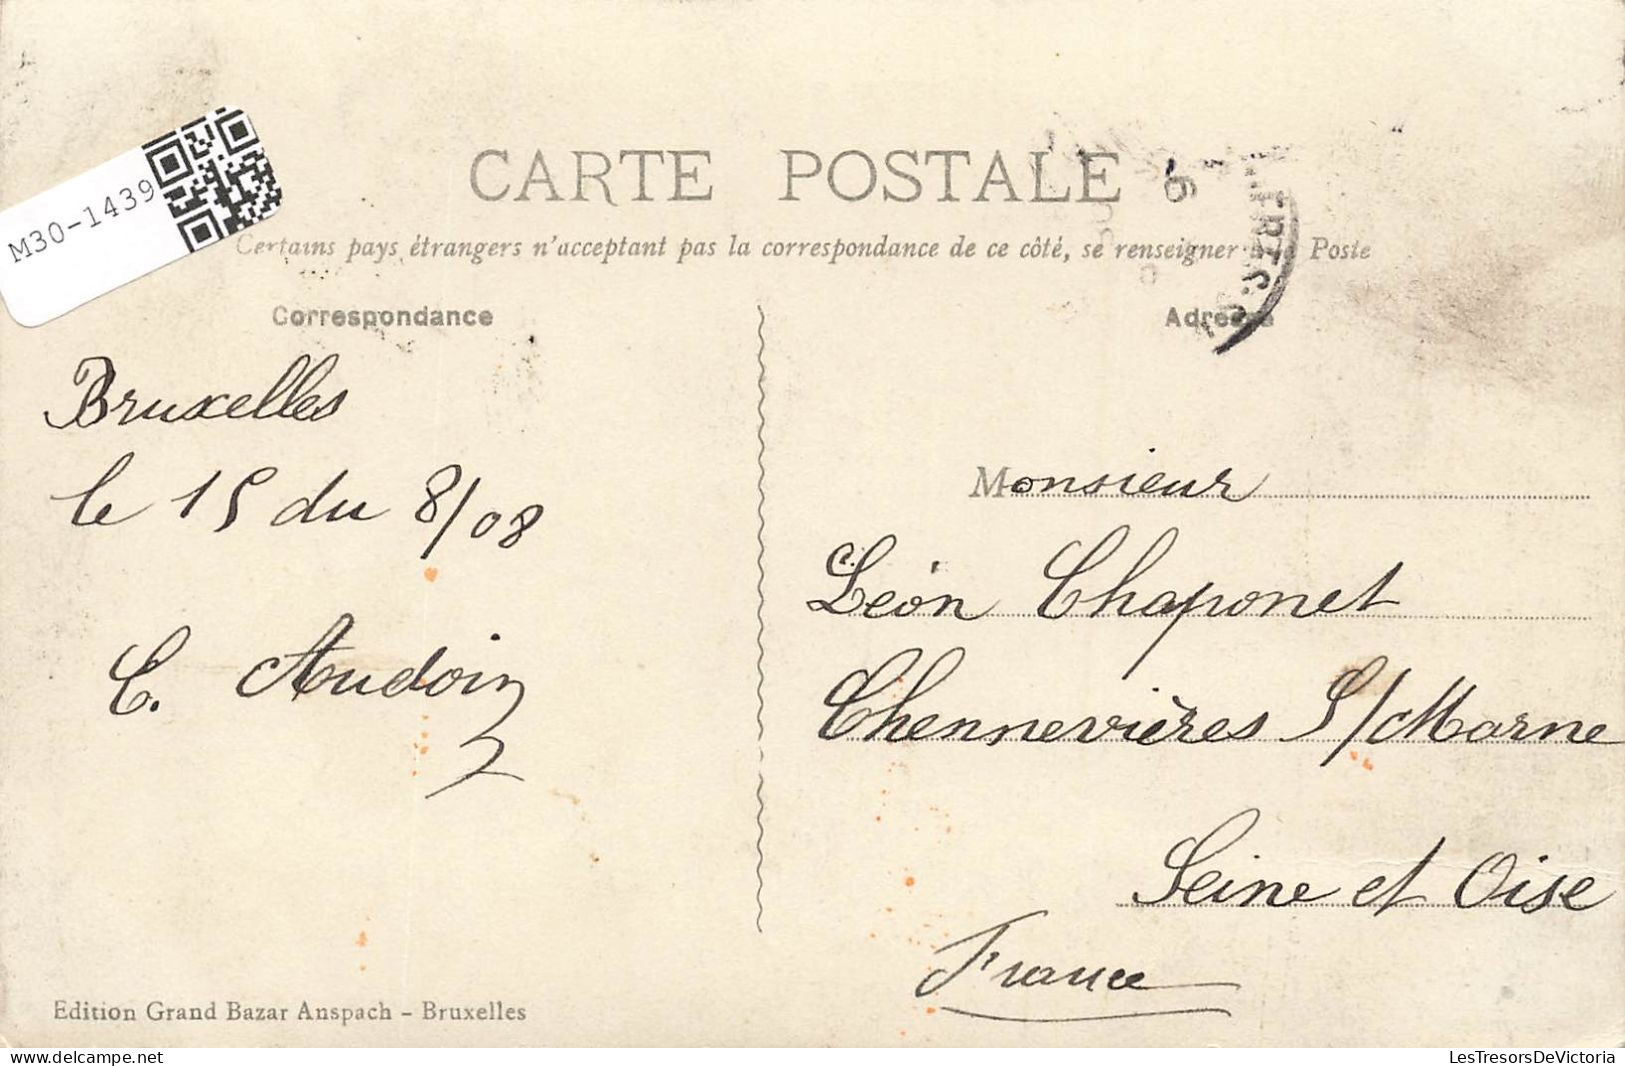 M30-1439
CARTE POSTALE
Certains pays étrangers n'acceptant pas la correspondance de ce côté, se renseigner Poste
Correspondance
Adresse
Bruxelles
le 15 du 8/08
C. Audoin
Monsieur
Léon Chaponet
Chennevières S/Marne
Seine et Oise
France
Edition Grand Bazar Anspach - Bruxelles
delcampe.net
LesTresorsDeVictoria